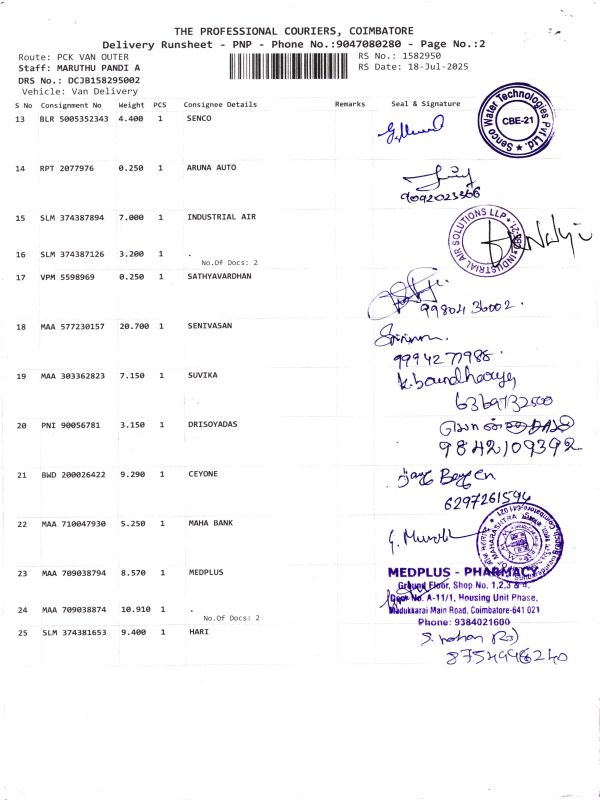 THE PROFESSIONAL COURIERS, COIMBATORE
Delivery Runsheet - PNP - Phone No.:9047080280 - Page No.:2
Route: PCK VAN OUTER
RS No.: 1582950
Staff: MARUTHU PANDI A
RS Date: 18-Jul-2025
DRS No.: DCJB158295002
Vehicle: Van Delivery
S No Consignment No Weight PCS Consignee Details Remarks Seal & Signature
13 BLR 5005352343 4.400 1 SENCO
Senco Water Technologies Pvt Ltd. ★
CBE-21
14 RPT 2077976 0.250 1 ARUNA AUTO
9092023366
15 SLM 374387894 7.000 1 INDUSTRIAL AIR
INDUSTRIAL AIR SOLUTIONS LLP
16 SLM 374387126 3.200 1 .
No.Of Docs: 2
17 VPM 5598969 0.250 1 SATHYAVARDHAN
9980436002.
18 MAA 577230157 20.700 1 SENIVASAN
9994277988.
19 MAA 303362823 7.150 1 SUVIKA
20 PNI 90056781 3.150 1 DRISOYADAS
9842109392
21 BWD 200026422 9.290 1 CEYONE
6297261594
22 MAA 710047930 5.250 1 MAHA BANK
23 MAA 709038794 8.570 1 MEDPLUS
MEDPLUS - PHARMACY
Ground Floor, Shop No. 1,2,3 & 4,
Door No. A-11/1, Housing Unit Phase,
Madukkarai Main Road, Coimbatore-641 021
Phone: 9384021600
24 MAA 709038874 10.910 1 .
No.Of Docs: 2
25 SLM 374381653 9.400 1 HARI
8754998240